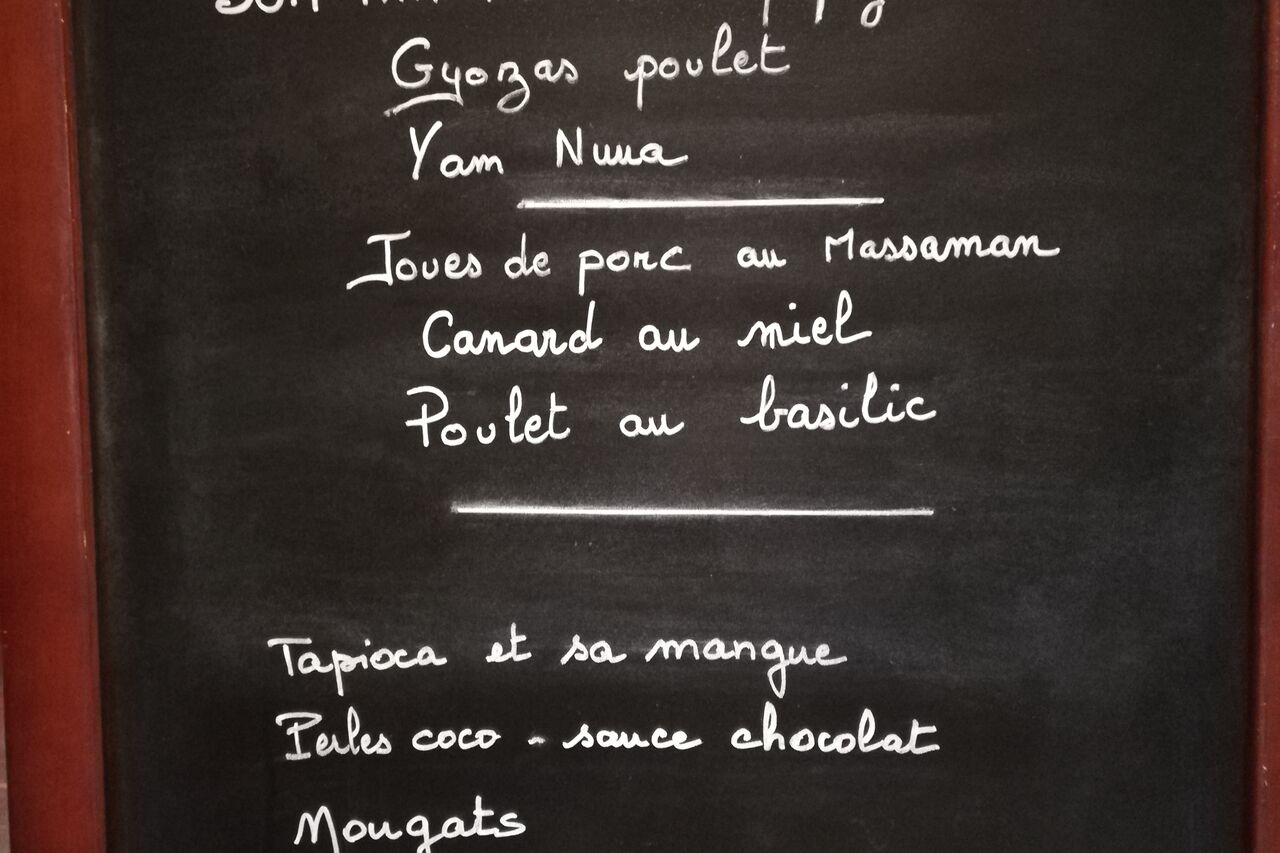 Gyozas poulet
Yam Nuua
Joues de porc au Massaman
Canard au miel
Poulet au basilic
Tapioca et sa mangue
Perles coco - sauce chocolat
Nougats